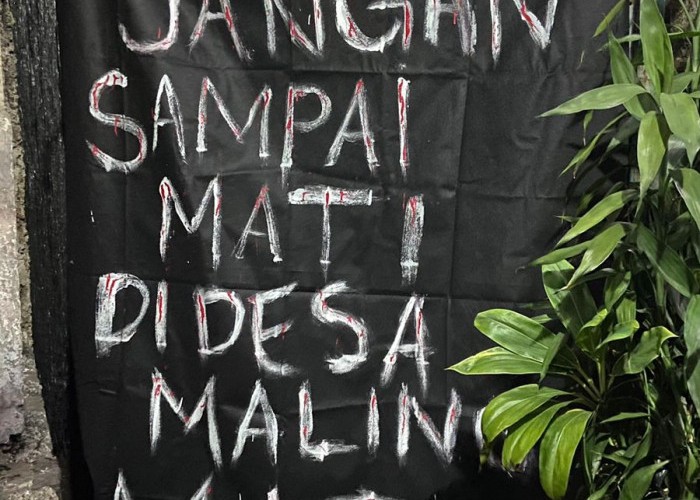 JANGAN
SAMPAI
MATI
DIDESA
MALIN